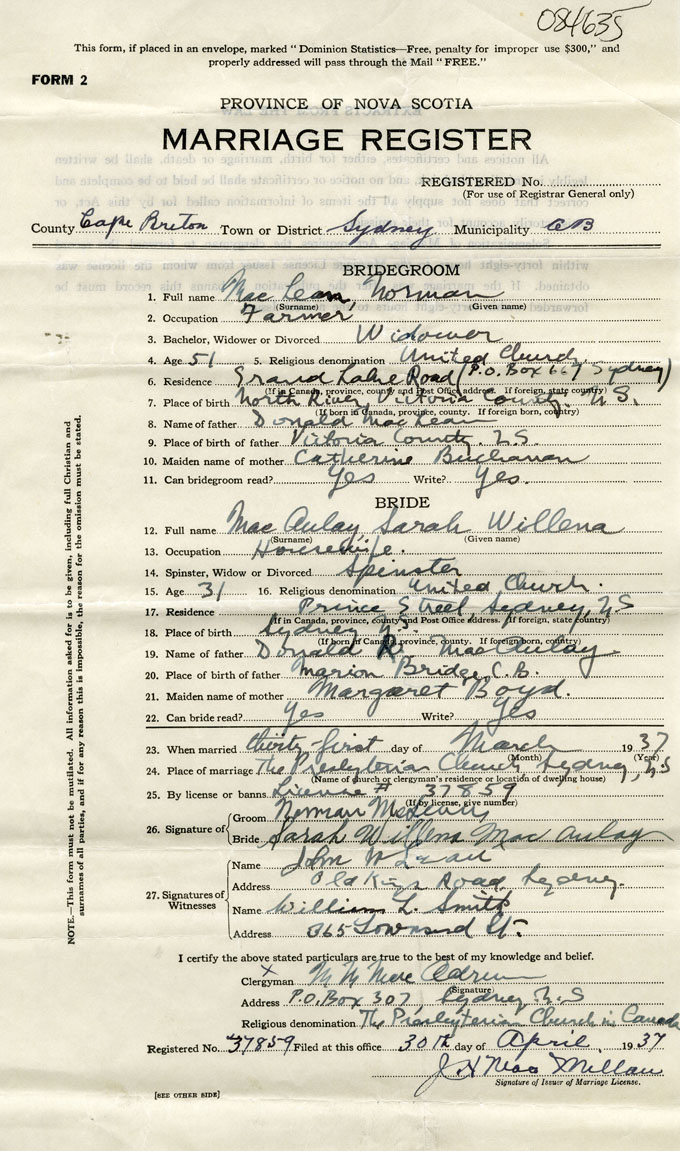 084635
This form, if placed in an envelope, marked "Dominion Statistics—Free, penalty for improper use $300," and
properly addressed will pass through the Mail "FREE."
FORM 2
PROVINCE OF NOVA SCOTIA
MARRIAGE REGISTER
REGISTERED No.
(For use of Registrar General only)
County Cape Breton Town or District Sydney Municipality CB
BRIDEGROOM
1. Full name MacLean, Norman
(Surname) (Given name)
2. Occupation Farmer
3. Bachelor, Widower or Divorced Widower
4. Age 51 5. Religious denomination United Church
6. Residence Grand Lake Road (P.O. Box 667 Sydney)
(If in Canada, province, county and Post Office address. If foreign, state country)
7. Place of birth North River, Victoria County. N.S.
(If born in Canada, province, county. If foreign born, country)
8. Name of father Donald MacLean
9. Place of father Victoria County. N.S.
10. Maiden name of mother Catherine Buchanan
11. Can bridegroom read? Yes Write? Yes.
BRIDE
12. Full name MacAulay, Sarah Willena
(Surname) (Given name)
13. Occupation Housewife.
14. Spinster, Widow or Divorced Spinster
15. Age 31 16. Religious denomination United Church.
17. Residence Prince Street, Sydney, N.S
(If in Canada, province, county and Post Office address. If foreign, state country)
18. Place of birth Sydney N.S.
(If born in Canada, province, county. If foreign born, country)
19. Name of father Donald R. MacAulay
20. Place of birth of father Marion Bridge, C.B.
21. Maiden name of mother Margaret Boyd.
22. Can bride read? Yes Write? Yes
23. When married thirty-first day of March 1937
(Month) (Year)
24. Place of marriage The Presbyterian Church, Sydney, N.S
(Name of church or clergyman's residence or location of dwelling house)
25. By license or banns License # 37859
(If by license, give number)
26. Signature of Groom Norman McLean
Bride Sarah Willena MacAulay
27. Signatures of Witnesses
Name John
Address Old Road Sydney.
Name William L. Smith
Address 365 Townsend St.
I certify the above stated particulars are true to the best of my knowledge and belief.
X
Clergyman
(Signature)
Address P.O. Box 307, Sydney N.S
Religious denomination The Presbyterian Church in Canada
Registered No. 37859 Filed at this office 30th day of April 1937
J H MacMillan
Signature of Issuer of Marriage License.
[SEE OTHER SIDE]
NOTE.—This form must not be mutilated. All information asked for is to be given, including full Christian and
surnames of all parties, and if for any reason this is impossible, the reason for the omission must be stated.